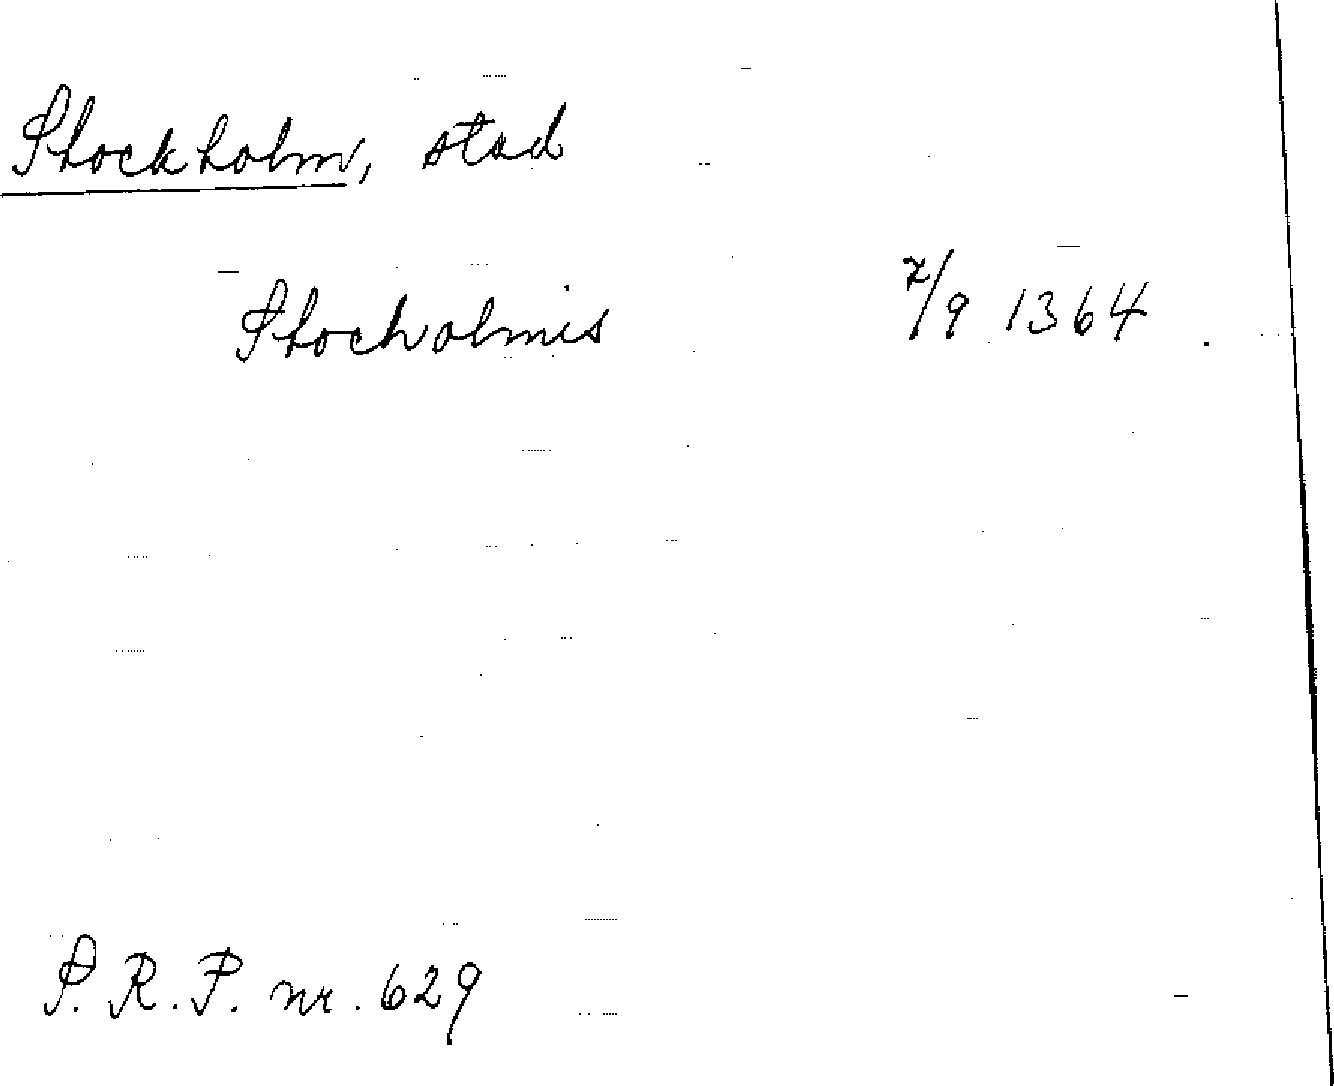 Stockholm, stad
Stocholmis 7/9 1364
S. R. P. nr. 629